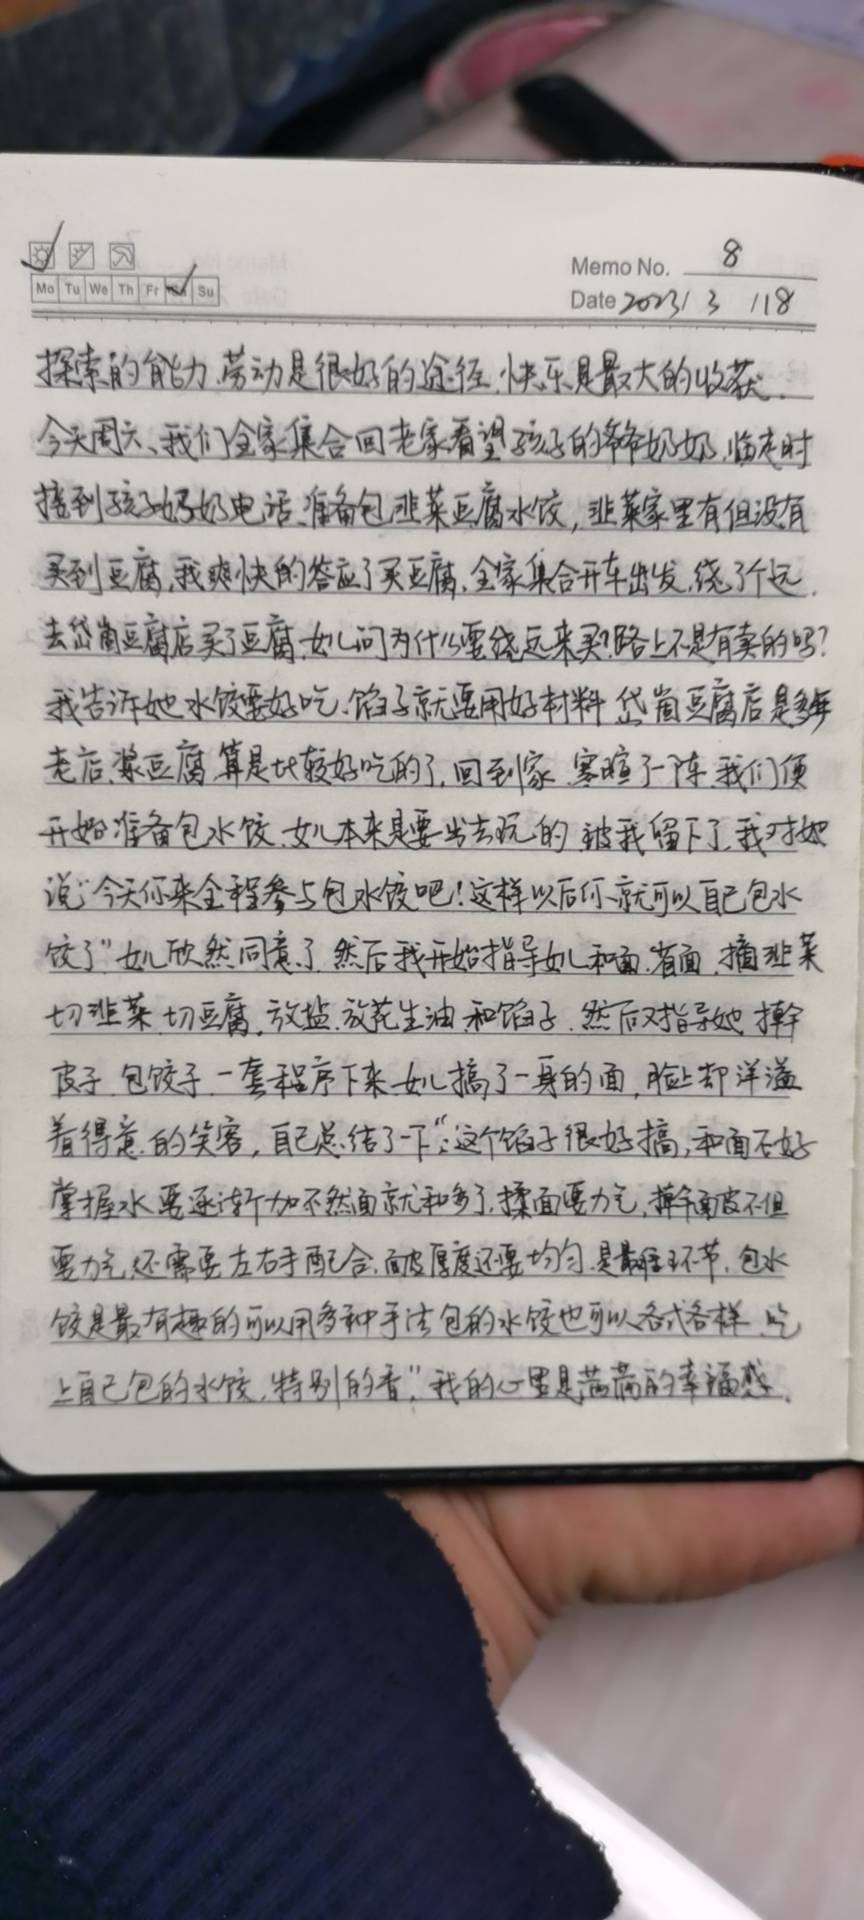 Memo No. 8
Mo Tu We Th Fr Sa Su
Date 2023/3/18
探索的能力、劳动是很好的途径、快乐是最大的收获.
今天周六、我们全家集合回老家看望孩子的爷爷奶奶、临走时
接到孩子奶奶电话、准备包韭菜豆腐水饺，韭菜家里有但没有
买到豆腐，我爽快的答应了买豆腐、全家集合开车出发，绕了个远，
去岱崮豆腐店买了豆腐、女儿问为什么要绕远来买？路上不是有卖的吗？
我告诉她水饺要好吃、馅子就要用好材料 岱崮豆腐店是多年
老店、浆豆腐、算是比较好吃的了，回到家 寒暄了一阵、我们便
开始准备包水饺、女儿本来是要出去玩的 被我留下了、我对她
说“今天你来全程参与包水饺吧！这样以后你就可以自己包水
饺了”女儿欣然同意了 然后我开始指导女儿和面、省面、摘韭菜
切韭菜、切豆腐，放盐、放花生油、和馅子、然后又指导她 擀
皮子 包饺子 一套程序下来、女儿搞了一身的面，脸上却洋溢
着得意的笑容，自己总结了一下“:这个馅子很好搞，和面不好
掌握水要逐渐加不然面就和多了，揉面要力气，擀面皮不但
要力气、还需要左右手配合、面皮厚度还要均匀、是最难环节，包水
饺是最有趣的可以用多种手法包的水饺也可以各式各样 吃
上自己包的水饺，特别的香”，我的心里是满满的幸福感、